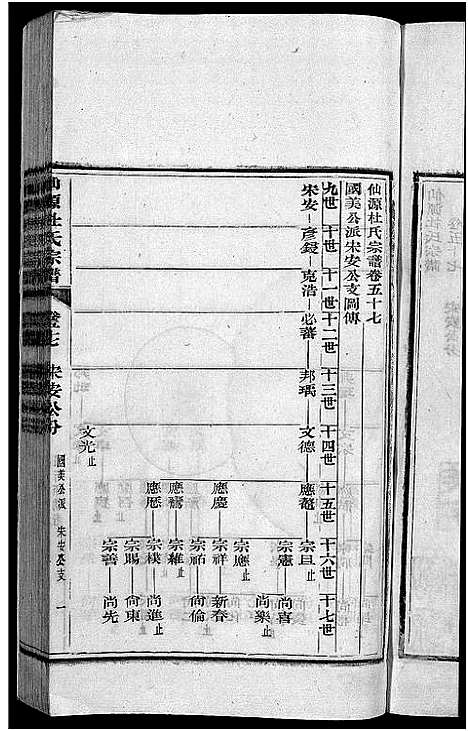 仙源杜氏宗譜卷五十七
國美公派宋安公支圖傳
九世 十世 十一世 十二世 十三世 十四世 十五世 十六世 十七世
宋安 彥銀 克浩 必蕃 邦瑀 文德 應鰲 宗旦止
宗憲 尚喜
尚樂止
宗應止
應慶 宗祥 新春
宗祐 尚倫
應鸞 宗雍止
應歷 宗樸 尚進止
宗賜 尚東
文光止 宗善 尚先
仙源杜氏宗譜
宋安公分
國美公派 宋安公支 一